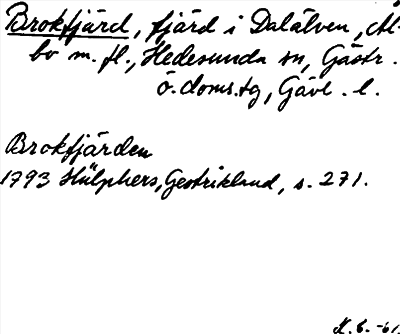 Brokfjärd, fjärd i Dalälven, Ål-
bo m. fl., Hedesunda sn, Gästr.
ö. doms.tg, Gävl. l.
Brokfjärden
1793 Hülphers, Gestrikland, s. 271.
K. G. -61